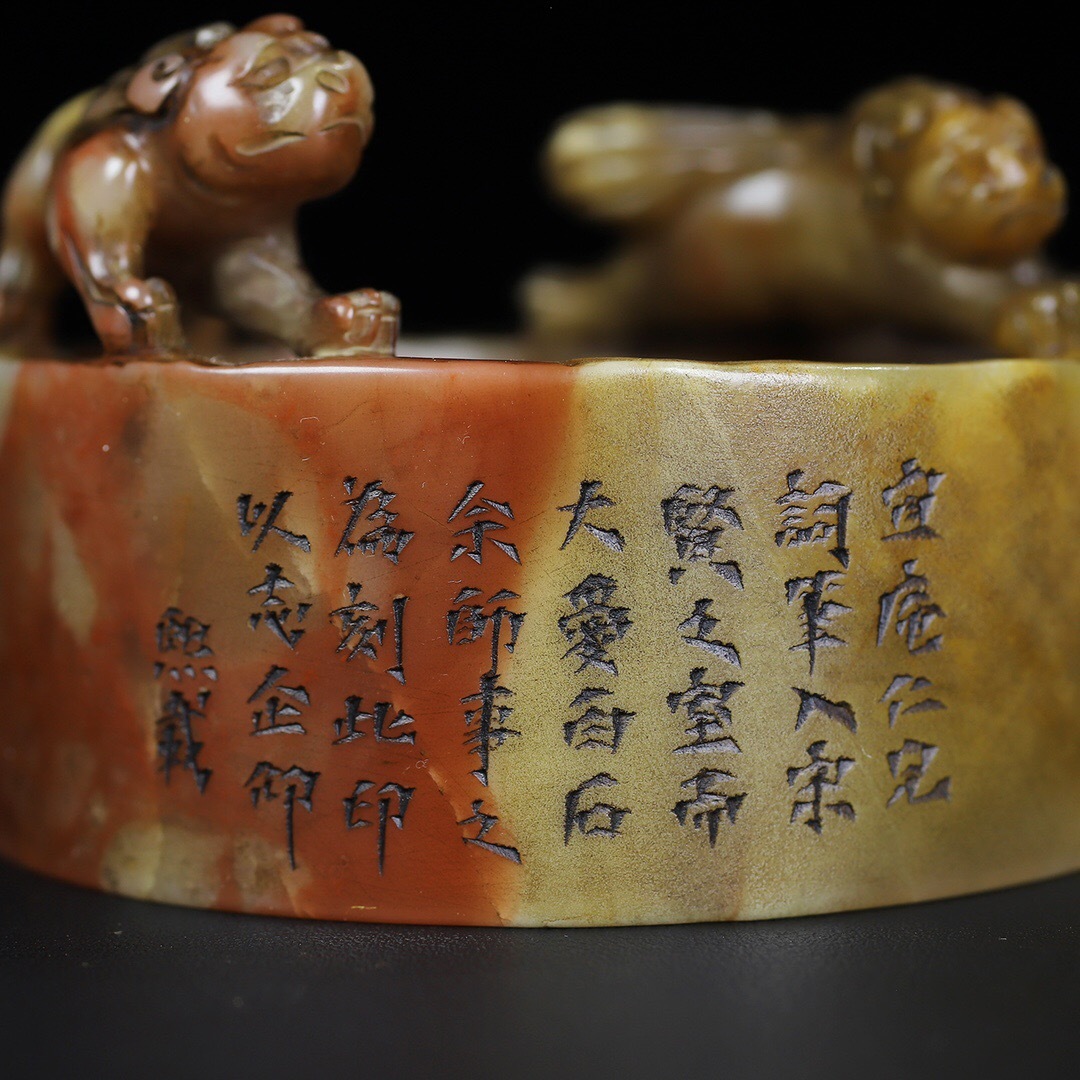 宜庵仁兄
詞筆入宋
賢之室而
大愛白石
余師事之
為刻此印
以志企仰
熙載